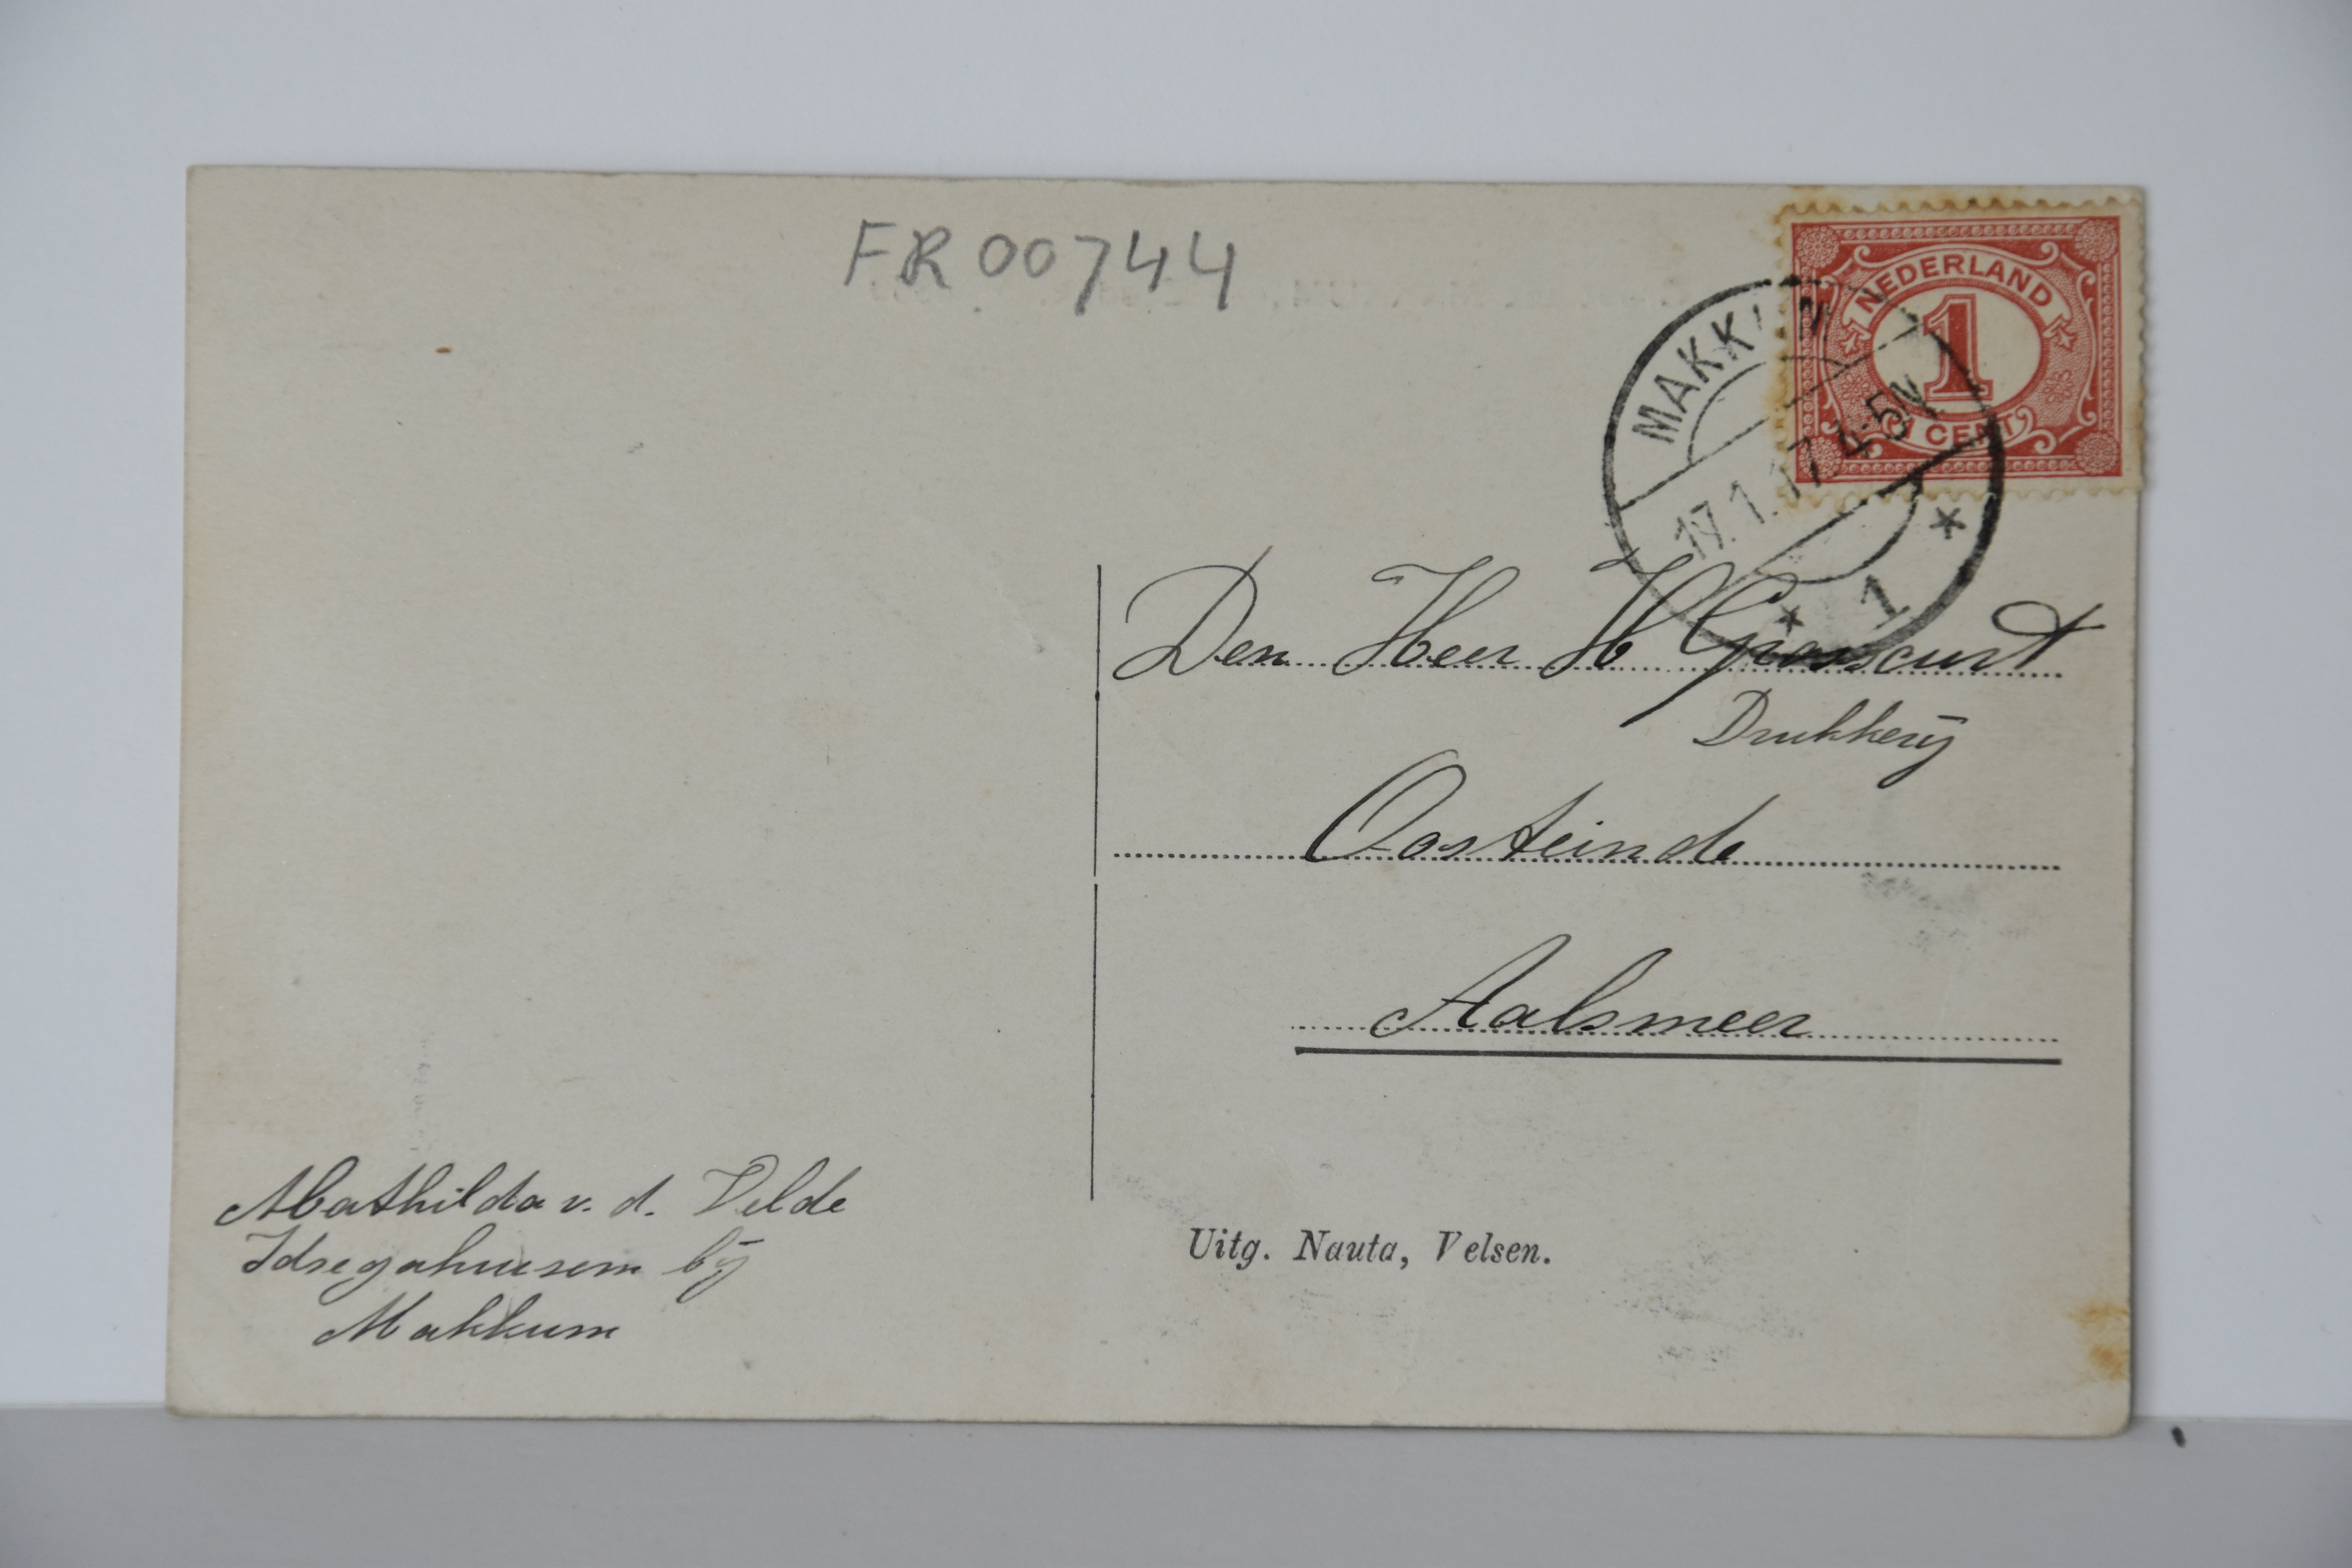 FR 00744
NEDERLAND
1
CENT
MAKKUM
17.1.17.4-5N
1
Den Heer H
Drukkerij
Oosteinde
Aalsmeer
Mathilda v. d. Velde
Idsegahuizem bij
Makkum
Uitg. Nauta, Velsen.